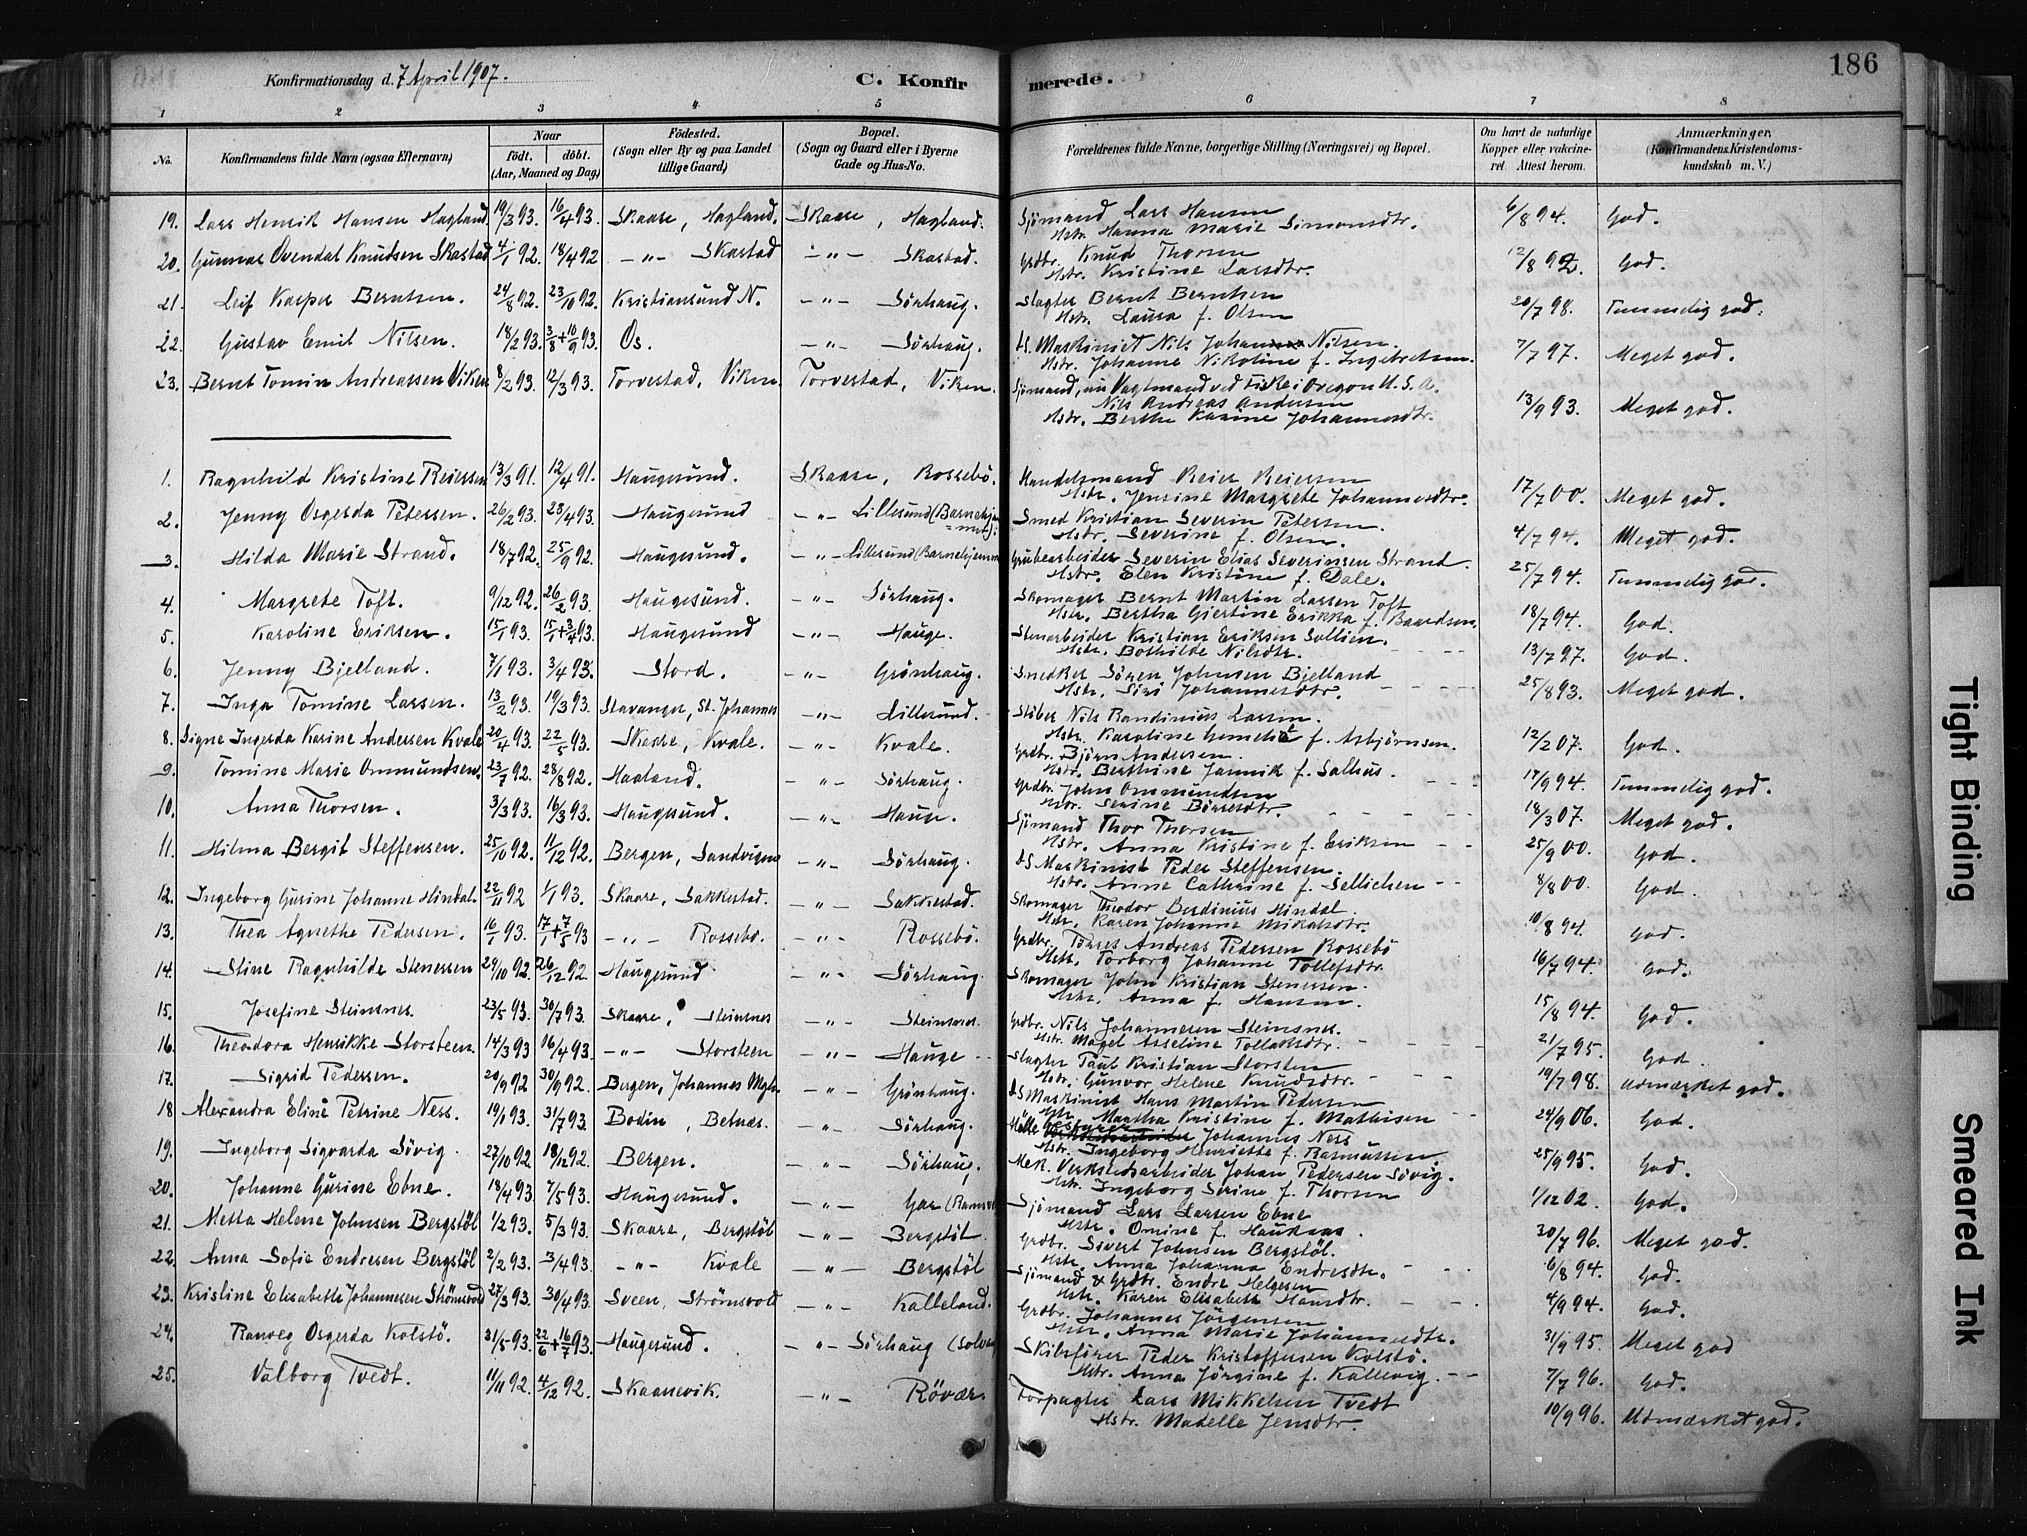 186
Konfirmationsdag d. 7 April 1907.
C. Konfirmerede.
1 2 3 4 5 6 7 8
No.
Konfirmandens fulde Navn (ogsaa Efternavn)
Naar
födt. döbt.
(Aar, Maaned og Dag)
Födested.
(Sogn eller By og paa Landet
tillige Gaard)
Bopæl.
(Sogn og Gaard eller i Byerne
Gade og Hus-No.
Forældrenes fulde Navne, borgerlige Stilling (Næringsvei) og Bopæl.
Om havt de naturlige
Kopper eller vakcine-
ret. Attest herom.
Anmærkninger.
(Konfirmandens Kristendoms-
kundskab m. V.)
19. Lars Henrik Hansen Hagland. 19/3 93. 16/4 93. Skaare, Hagland. Skaare, Hagland. Sjömand Lars Hansen 6/8 94. God.
Hstr. Hanna Marie Simonsdtr.
20. Gunnar Ovendal Knudsen Skastad 4/1 92. 18/4 92 -"- Skastad -"- Skastad. Grdbr. Knud Thorsen 12/8 92. God.
Hstr. Kristine Larsdtr.
21. Leif Kasper Berntsen. 24/8 92. 23/10 92. Kristiansund N. -"- Sörhaug. Slagter Bernt Berntsen 20/7 98. Temmelig god.
Hstr. Laura f. Olsen
22. Gustav Emil Nilsen. 18/2 93. 3/8 + 10/9 93. Os. -"- Sörhaug. ds. Maskinist Nils Johan Nilsen. 7/7 97. Meget god.
Hstr. Johanne Nikoline f. Ingebretsen.
23. Bernt Tomin Andreassen Viken 8/2 93. 12/3 93. Torvestad, Viken. Torvestad, Viken. Sjömand, nu Vagtmand ved Fiske i Oregon U.S.A.
Nils Andreas Andersen 13/9 93. Meget god.
Hstr. Berthe Karine Johannesdtr.
1. Ragnhild Kristine Reiersen 13/3 91. 12/4 91. Haugesund. Skaare, Rossebö. Handelsmand Reier Reiersen 17/7 00. Meget god.
Hstr. Jensine Margrete Johannesdtr.
2. Jenny Osgerda Petersen. 26/2 93. 23/4 93. Haugesund -"- Lillesund (Barnehjemmet). Smed Kristian Severin Petersen. 4/7 94. Meget god.
Hstr. Severine f. Olsen.
3. Hilda Marie Strand. 18/7 92. 25/9 92. Haugesund. -"- Lillesund (Barnehjemmet Grubearbeider Severin Elias Severinsen Strand 25/7 94. Temmelig god.
Hstr. Elen Kristine f. Dale.
4. Margrete Toft. 9/12 92. 26/2 93. Haugesund. -"- Sörhaug. Skomager Bernt Martin Larsen Toft 18/7 94. God.
Hstr. Bertha Gjertine Erikka f. Baardsen.
5. Karoline Eriksen. 15/1 93. 15/1 + 3/4 93. Haugesund -"- Hauge. Stenarbeider Kristian Eriksen Sollien. 13/7 97. God.
Hstr. Bothilde Nilsdtr.
6. Jenny Bjelland. 7/1 93. 3/4 93. Stord. -"- Grönhaug. Snedker Sören Johnsen Bjelland 25/8 93. Meget god.
Hstr. Siri Johannesdtr.
7. Inga Tomine Larsen. 13/2 93. 19/3 93. Stavanger, St. Johannes -"- Lillesund. Stöber Nils Randinius Larsen. 12/2 07. God.
Hstr. Karoline f. Asbjörnsen.
8. Signe Ingerda Karine Andersen Kvale 20/4 93. 22/5 93. Skaare, Kvale. -"- Kvale. Grdbr. Björn Andersen.
Hstr. Berthine Jannik f. Salhus. 17/9 94. Temmelig god.
9. Tomine Marie Ommundsen. 23/7 92. 28/8 92. Haaland. -"- Sörhaug. Grdbr. John Ommundsen 18/3 07. Meget god.
Hstr. Serine Börresdtr.
10. Anna Thorsen. 3/3 93. 16/3 93. Haugesund. -"- Hauge. Sjömand Thor Thorsen 25/9 00. God.
Hstr. Anna Kristine f. Eriksen
11. Hilma Bergit Steffensen. 25/10 92. 11/12 92. Bergen, Sandvigen -"- Sörhaug. ds Maskinist Peder Steffensen. 8/8 00. God.
Hstr. Anne Cathrine f. Sellichen
12. Ingeborg Gurine Johanne Hindal. 22/11 92 1/1 93. Skaare, Sakkestad. -"- Sakkestad. Skomager Theodor Berdinius Hindal. 10/8 94. God.
Hstr. Karen Johanne Mikalsdtr.
13. Thea Agnethe Pedersen. 16/1 93. 17/1 + 7/5 93 -"- Rossebö. -"- Rossebö. Grdbr. Torres Andreas Pedersen Rossebö 16/7 94. God.
Hstr. Torborg Johanne Tollefsdtr.
14. Stine Ragnhilde Stenersen 29/10 92. 26/12 92. Haugesund -"- Sörhaug. Skomager John Kristian Stenersen. 15/8 94. God.
Hstr. Anna f. Hansen.
15. Josefine Steinsnes. 23/5 93. 30/7 93. Skaare, Steinsnes -"- Steinsnes. Grdbr. Nils Johannesen Steinsnes. 21/7 95. God.
Hstr. Magel Asseline Tollaksdtr.
16. Theodora Henrikke Storsteen. 14/3 93 16/4 93. -"- Storsteen -"- Hauge Slagter Paul Kristian Storsten 19/7 98. Udmærket god.
Hstr. Gunvor Helene Knudsdtr.
17. Sigrid Pedersen. 20/9 92 30/9 92. Bergen, Johannes Mgh. -"- Grönhaug. ds Maskinist Hans Martin Pedersen 24/9 06. God.
Hstr. Martha Kristine f. Mathisen
18 Alexandra Eline Petrine Ness. 19/1 93. 31/7 93. Bodin, -"- Sörhaug. Johannes Ness 25/9 95. God.
Hstr. Ingeborg Henriette f. Rasmussen
19. Ingeborg Sigvarda Sövig. 27/10 92. 18/12 92. Bergen. -"- Sörhaug. Mek. Verkstedsarbeider Johan Pedersen Sövig. 1/12 02. God.
Hstr. Ingeborg Serine f. Thorsen
20. Johanne Gurine Ebne. 18/4 93. 7/5 93. Haugesund. -"- Gar Sjömand Lars Larsen Ebne 30/7 96. Meget god.
Hstr. Omine f. Haukaas.
21. Metta Helene Johnsen Bergstöl 1/2 93. 5/3 93. Skaare, Bergstöl -"- Bergstöl. Grdbr. Sivert Johnsen Bergstöl. 6/8 94. God.
Hstr. Anna Johanna Endresdtr.
22. Anna Sofie Endresen Bergstöl 2/2 93. 3/4 93. -"- Kvale -"- Bergstöl Sjömand & Grdbr. Endre Helgesen 4/9 94. God.
Hstr. Karen Elisabeth Hansdtr.
23. Kristine Elisabeth Johannesen Strömsvold 27/3 93. 30/4 93. Sveen, Strömsvold -"- Kalleland. Grdbr. Johannes Jörgensen 31/ 95. Meget god
Hstr. Anna Marie Johannesdtr.
24. Ranveg Osgerda Kolstö. 31/5 93. 22/6 + 16/7 93. Haugesund. -"- Sörhaug Skibsförer Peder Kristoffersen Kolstö. 7/7 96. God.
Hstr. Anna Jörgine f. Kallevig.
25. Valborg Tvedt. 11/11 92. 4/12 92. Skaanevik. -"- Rövær. Forpagter Lars Mikkelsen Tvedt 10/9 96. Udmærket god.
Hstr. Madelle Jensdtr.
Tight Binding
Smeared Ink